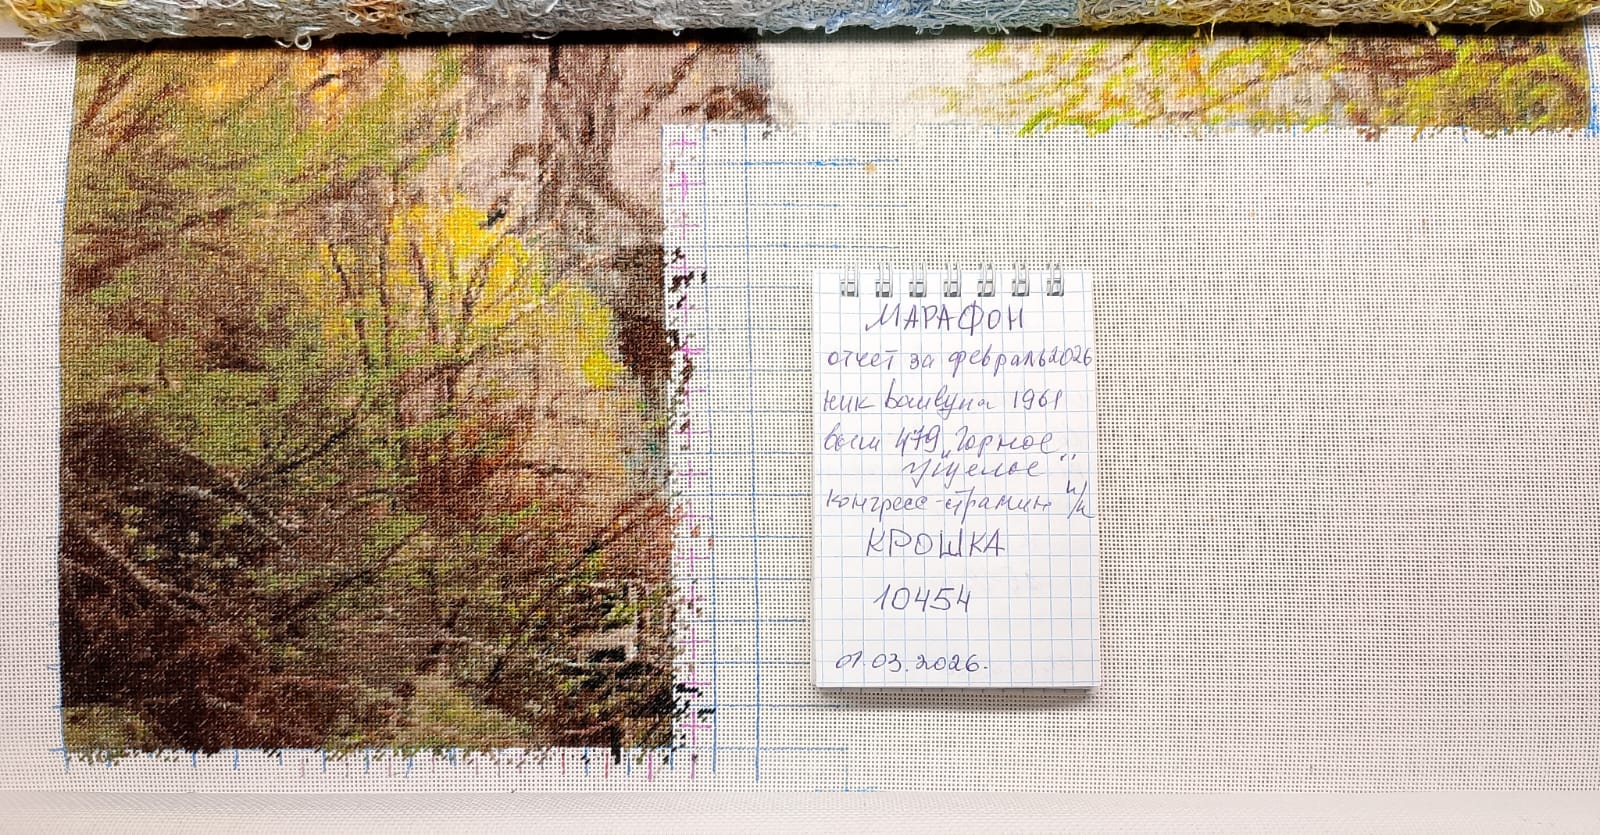 МАРАФОН
отчет за февраль 2026
ник 1961
479 „Горное
ущелье"
конгресс-страмин ш/к
КРОШКА
10454
01.03.2026.